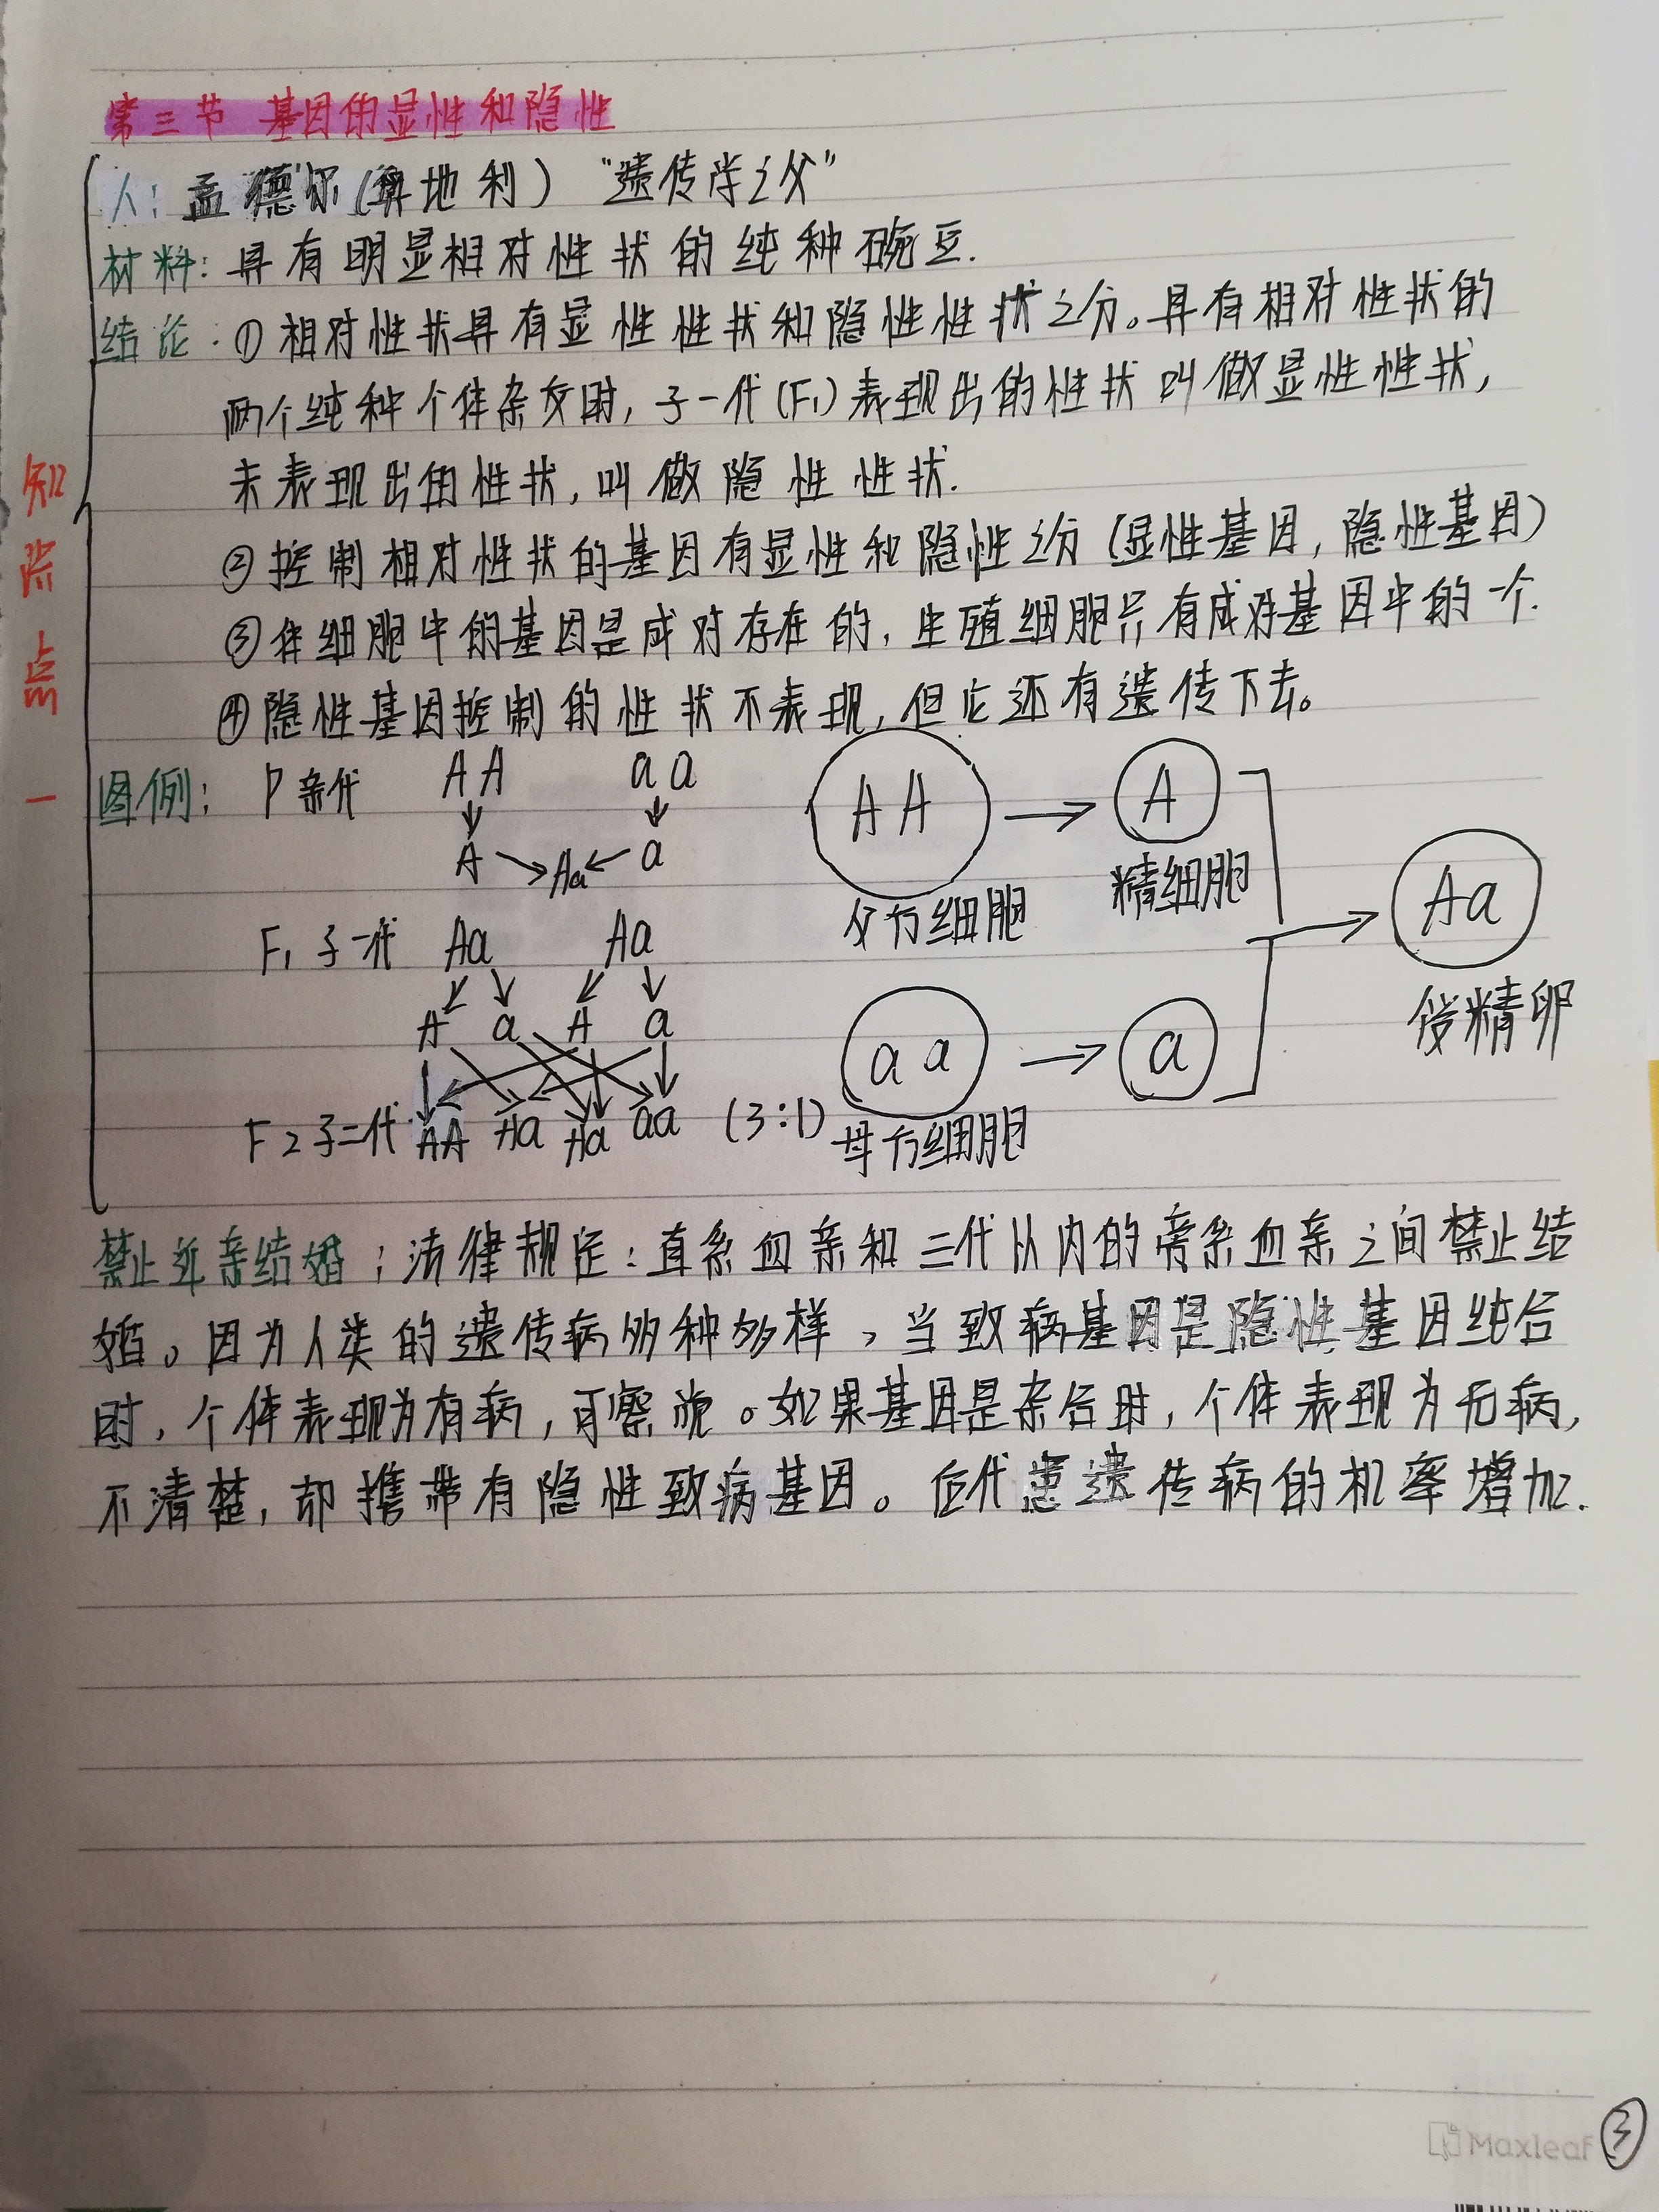 第三节 基因的显性和隐性
人：孟德尔(奥地利) “遗传学之父”
材料：具有明显相对性状的纯种豌豆.
结论：①相对性状具有显性性状和隐性性状之分。具有相对性状的
两个纯种个体杂交时，子一代(F₁)表现出的性状叫做显性性状，
未表现出的性状，叫做隐性性状.
②控制相对性状的基因有显性和隐性之分(显性基因，隐性基因)
③体细胞中的基因是成对存在的，生殖细胞只有成对基因中的一个.
④隐性基因控制的性状不表现，但它还有遗传下去。
知识点一
图例： P 亲代 AA aa
A Aa a
F₁ 子一代 Aa Aa
A a A a
F2 子二代 AA Aa Aa aa (3:1)
AA A
父方细胞 精细胞
Aa
受精卵
aa a
母方细胞
禁止近亲结婚：法律规定：直系血亲和三代以内的旁系血亲之间禁止结
婚。因为人类的遗传病多种多样，当致病基因是隐性基因纯合
时，个体表现为有病，可察觉。如果基因是杂合时，个体表现为无病，
不清楚，却携带有隐性致病基因。后代患遗传病的机率增加.
Maxleaf ③